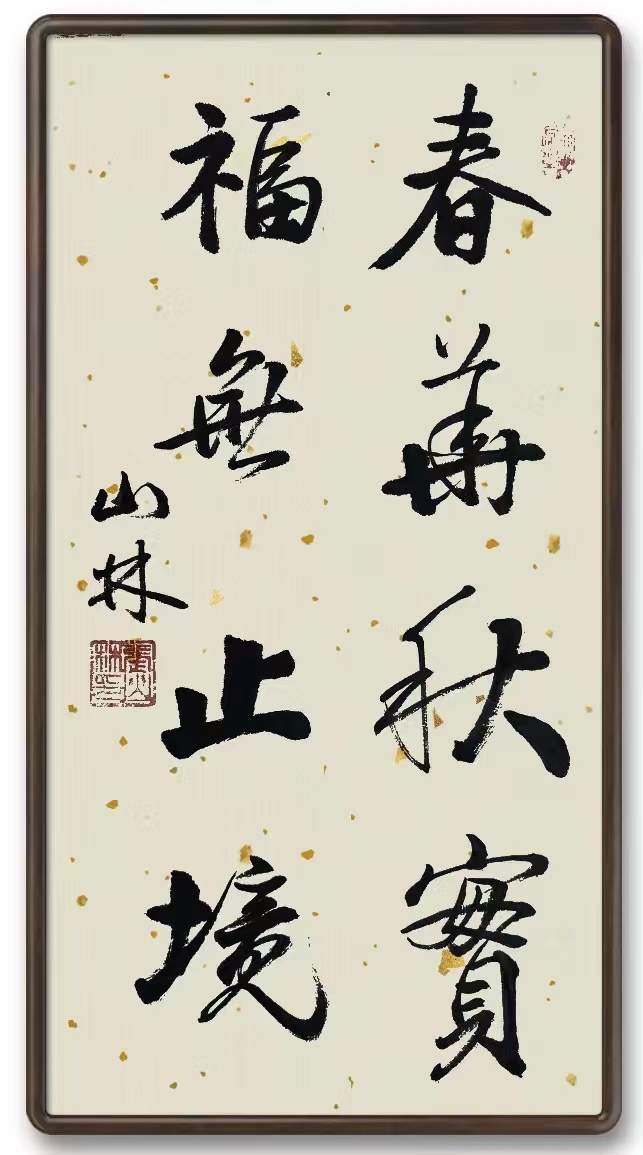 春華秋實
福無止境
山林